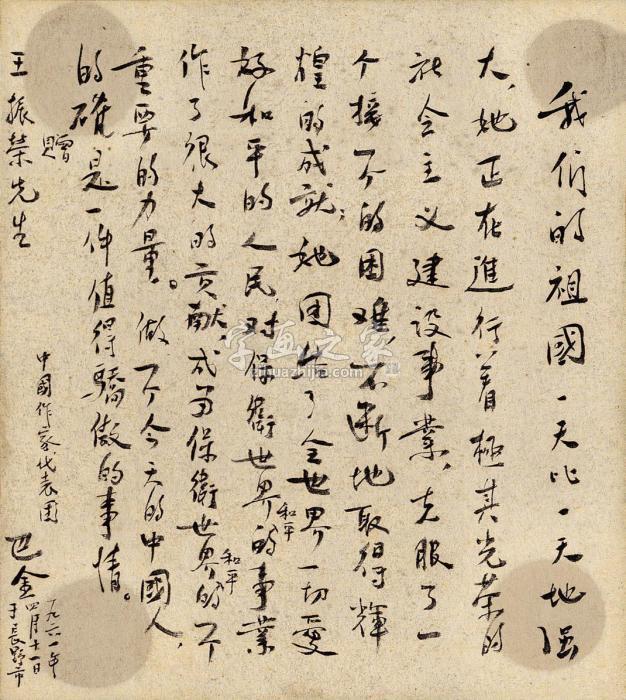 我们的祖國一天比一天地强
大,她正在進行着極其光荣的
社会主义建設事業,克服了一
个接一个的困难,不断地取得輝
煌的成就;她团结了全世界一切爱
好和平的人民,对保衛世界和平的事業
作了很大的贡献,成为保衛世界和平的一个
重要的力量。做一个今天的中國人,
的確是一件值得驕傲的事情。
贈
王振榮先生
中國作家代表团
巴金
一九六一年
四月十一日
于長野市
字画之家
zihuazhijia.com